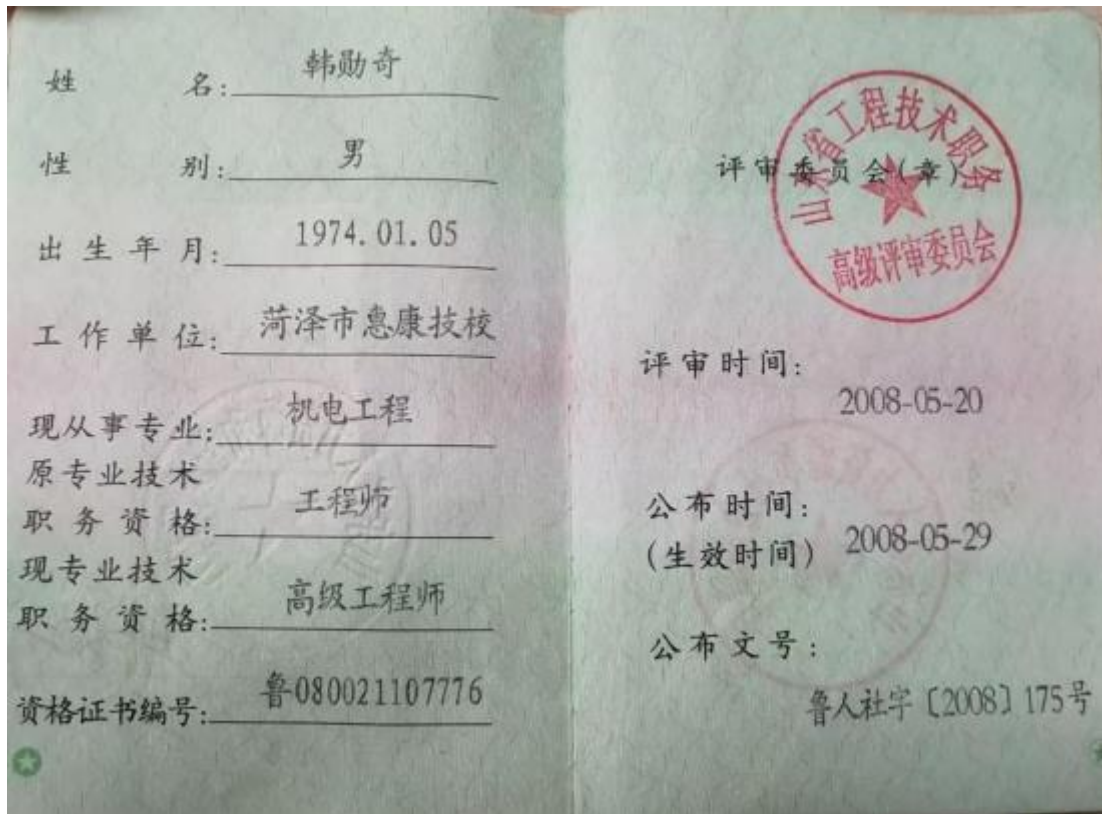 姓 名: 韩勋奇
性 别: 男
出 生 年 月: 1974.01.05
工 作 单 位: 菏泽市惠康技校
现从事专业: 机电工程
原专业技术
职 务 资 格: 工程师
现专业技术
职 务 资 格: 高级工程师
资格证书编号: 鲁080021107776
山东省工程技术职务
评审委员会(章)
高级评审委员会
评审时间:
2008-05-20
公布时间:
(生效时间) 2008-05-29
公布文号:
鲁人社字〔2008〕175号